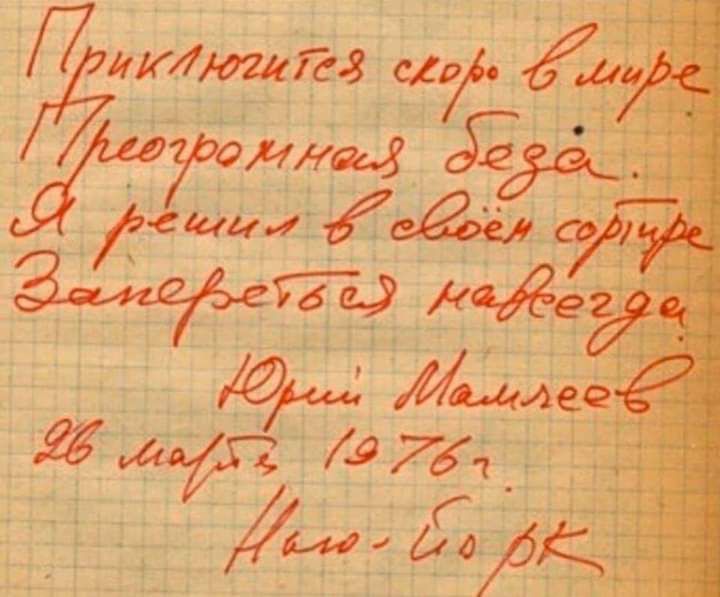 Приключится скоро в мире
Преогромная беда.
Я решил в своём сортире
Запереться навсегда.
Юрий Мамлеев
26 марта 1976 г.
Нью-Йорк